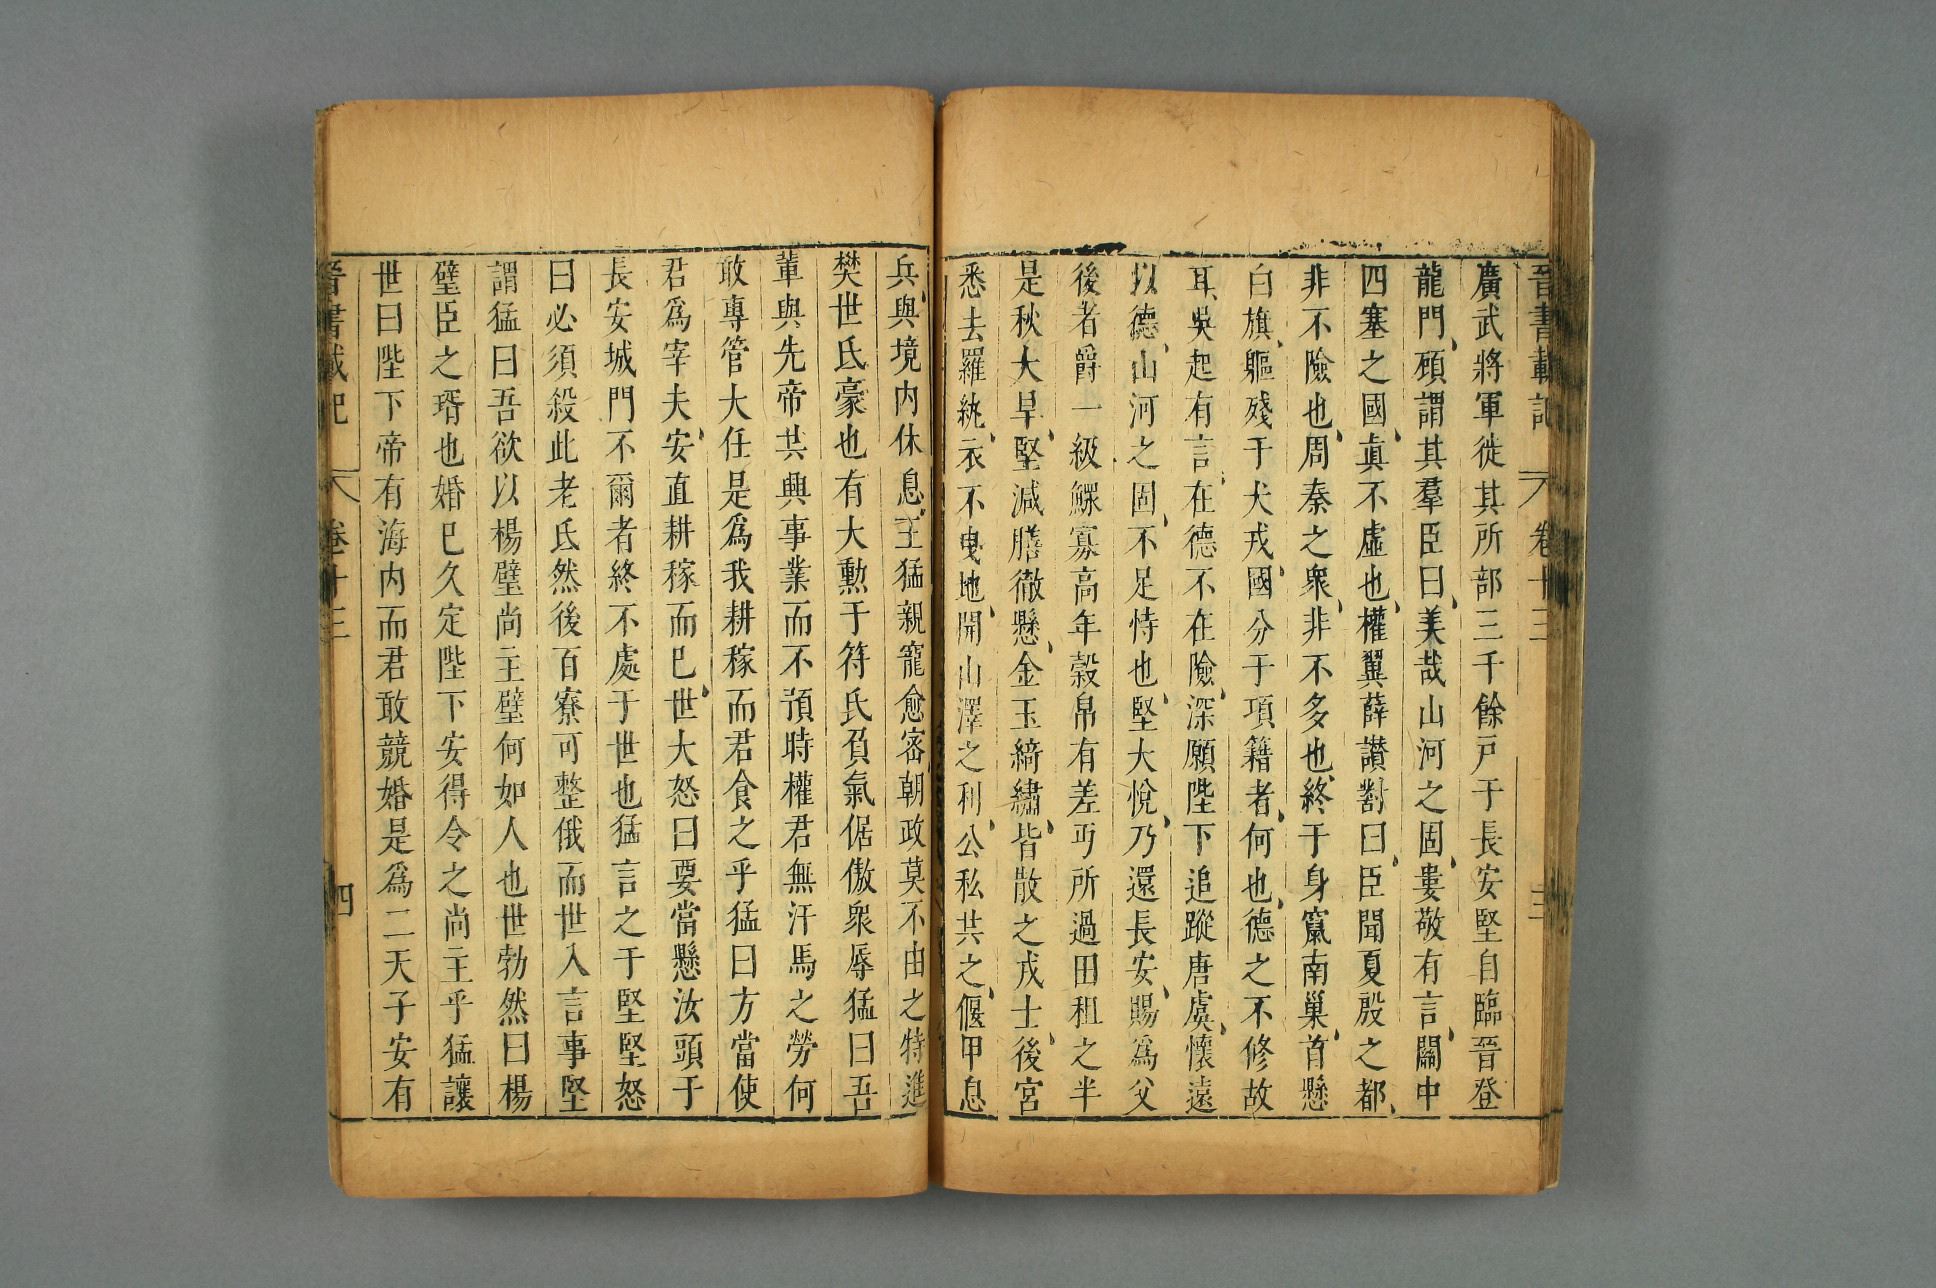 晉書載記 卷十三 三
廣武將軍徙其所部三千餘戸于長安堅自臨晉登
龍門顧謂其羣臣曰美哉山河之固婁敬有言關中
四塞之國眞不虛也權翼薛讃對曰臣聞夏殷之都
非不險也周秦之衆非不多也終于身竄南巢首懸
白旗軀殘于犬戎國分于項籍者何也德之不修故
耳吳起有言在德不在險深願陛下追蹤唐虞懷遠
以德山河之固不足恃也堅大悅乃還長安賜爲父
後者爵一級鰥寡高年穀帛有差丏所過田租之半
是秋大旱堅減膳徹懸金玉綺繡皆散之戎士後宮
悉去羅紈衣不曳地開山澤之利公私共之偃甲息
兵與境内休息王猛親寵愈密朝政莫不由之特進
樊世氐豪也有大勲于符氏負氣倨傲衆辱猛曰吾
輩與先帝共興事業而不預時權君無汗馬之勞何
敢專管大任是爲我耕稼而君食之乎猛曰方當使
君爲宰夫安直耕稼而已世大怒曰要當懸汝頭于
長安城門不爾者終不處于世也猛言之于堅堅怒
曰必須殺此老氐然後百寮可整俄而世入言事堅
謂猛曰吾欲以楊璧尚主璧何如人也世勃然曰楊
璧臣之壻也婚已久定陛下安得令之尚主乎猛讓
世曰陛下帝有海内而君敢競婚是爲二天子安有
晉書載記 卷十三 四